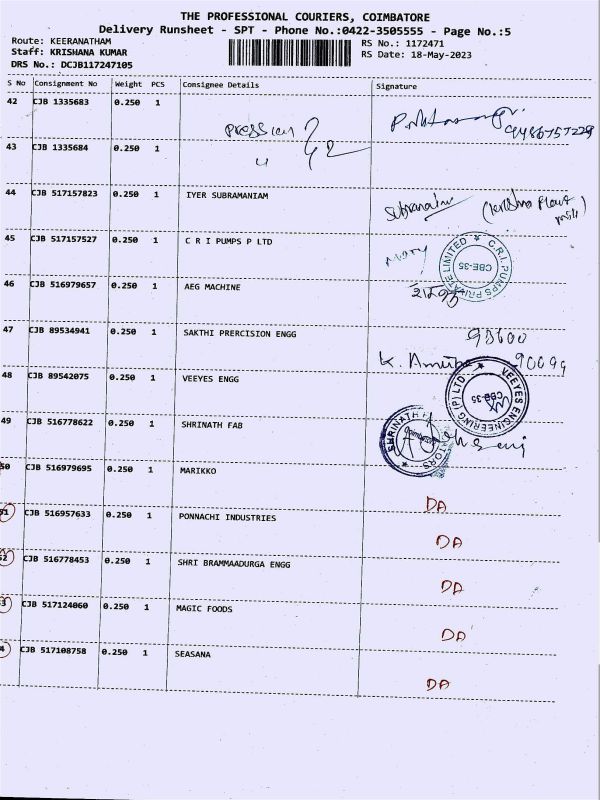 THE PROFESSIONAL COURIERS, COIMBATORE
Delivery Runsheet - SPT - Phone No.:0422-3505555 - Page No.:5
Route: KEERANATHAM RS No.: 1172471
Staff: KRISHANA KUMAR RS Date: 18-May-2023
DRS No.: DCJB117247105
S No Consignment No Weight PCS Consignee Details Signature
42 CJB 1335683 0.250 1
43 CJB 1335684 0.250 1
44 CJB 517157823 0.250 1 IYER SUBRAMANIAM
45 CJB 517157527 0.250 1 C R I PUMPS P LTD
C.R.I. PUMPS PRIVATE LIMITED
CBE-35
46 CJB 516979657 0.250 1 AEG MACHINE
47 CJB 89534941 0.250 1 SAKTHI PRERCISION ENGG
48 CJB 89542075 0.250 1 VEEYES ENGG
VEEYES ENGINEERING (P) LTD
CBE-35
49 CJB 516778622 0.250 1 SHRINATH FAB
SHRINATH
50 CJB 516979695 0.250 1 MARIKKO
DA
51 CJB 516957633 0.250 1 PONNACHI INDUSTRIES
DA
52 CJB 516778453 0.250 1 SHRI BRAMMAADURGA ENGG
DA
3 CJB 517124060 0.250 1 MAGIC FOODS
DA
4 CJB 517108758 0.250 1 SEASANA
DA